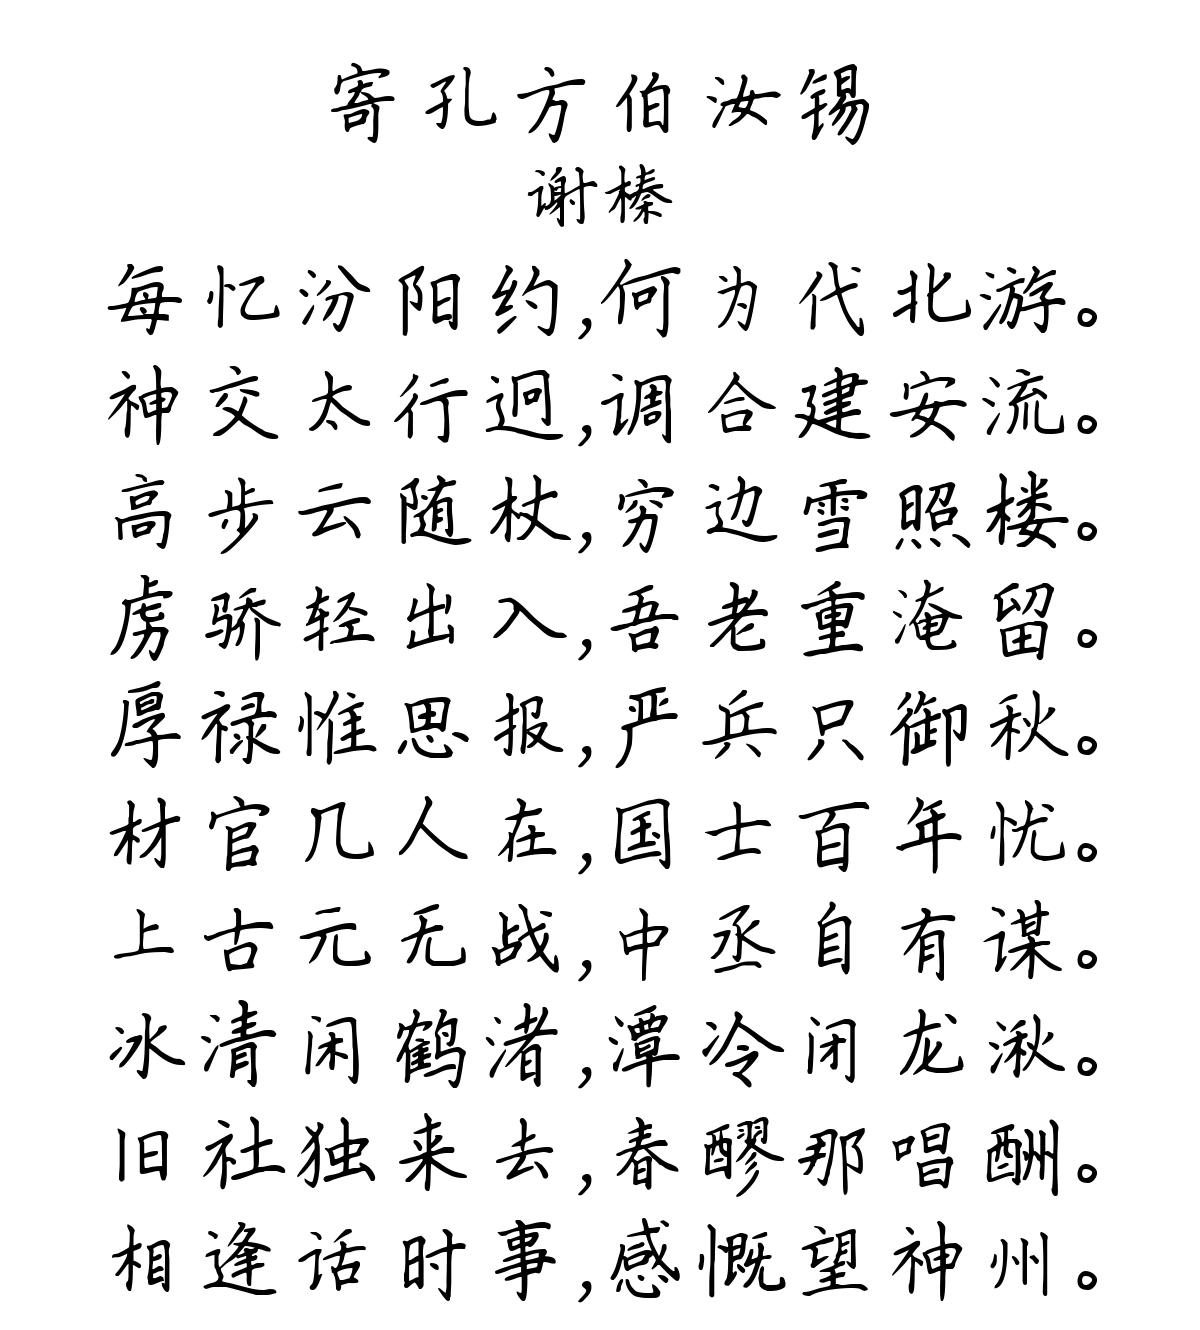 寄孔方伯汝锡
谢榛
每忆汾阳约,何为代北游。
神交太行迥,调合建安流。
高步云随杖,穷边雪照楼。
虏骄轻出入,吾老重淹留。
厚禄惟思报,严兵只御秋。
材官几人在,国士百年忧。
上古元无战,中丞自有谋。
冰清闲鹤渚,潭冷闭龙湫。
旧社独来去,春醪那唱酬。
相逢话时事,感慨望神州。